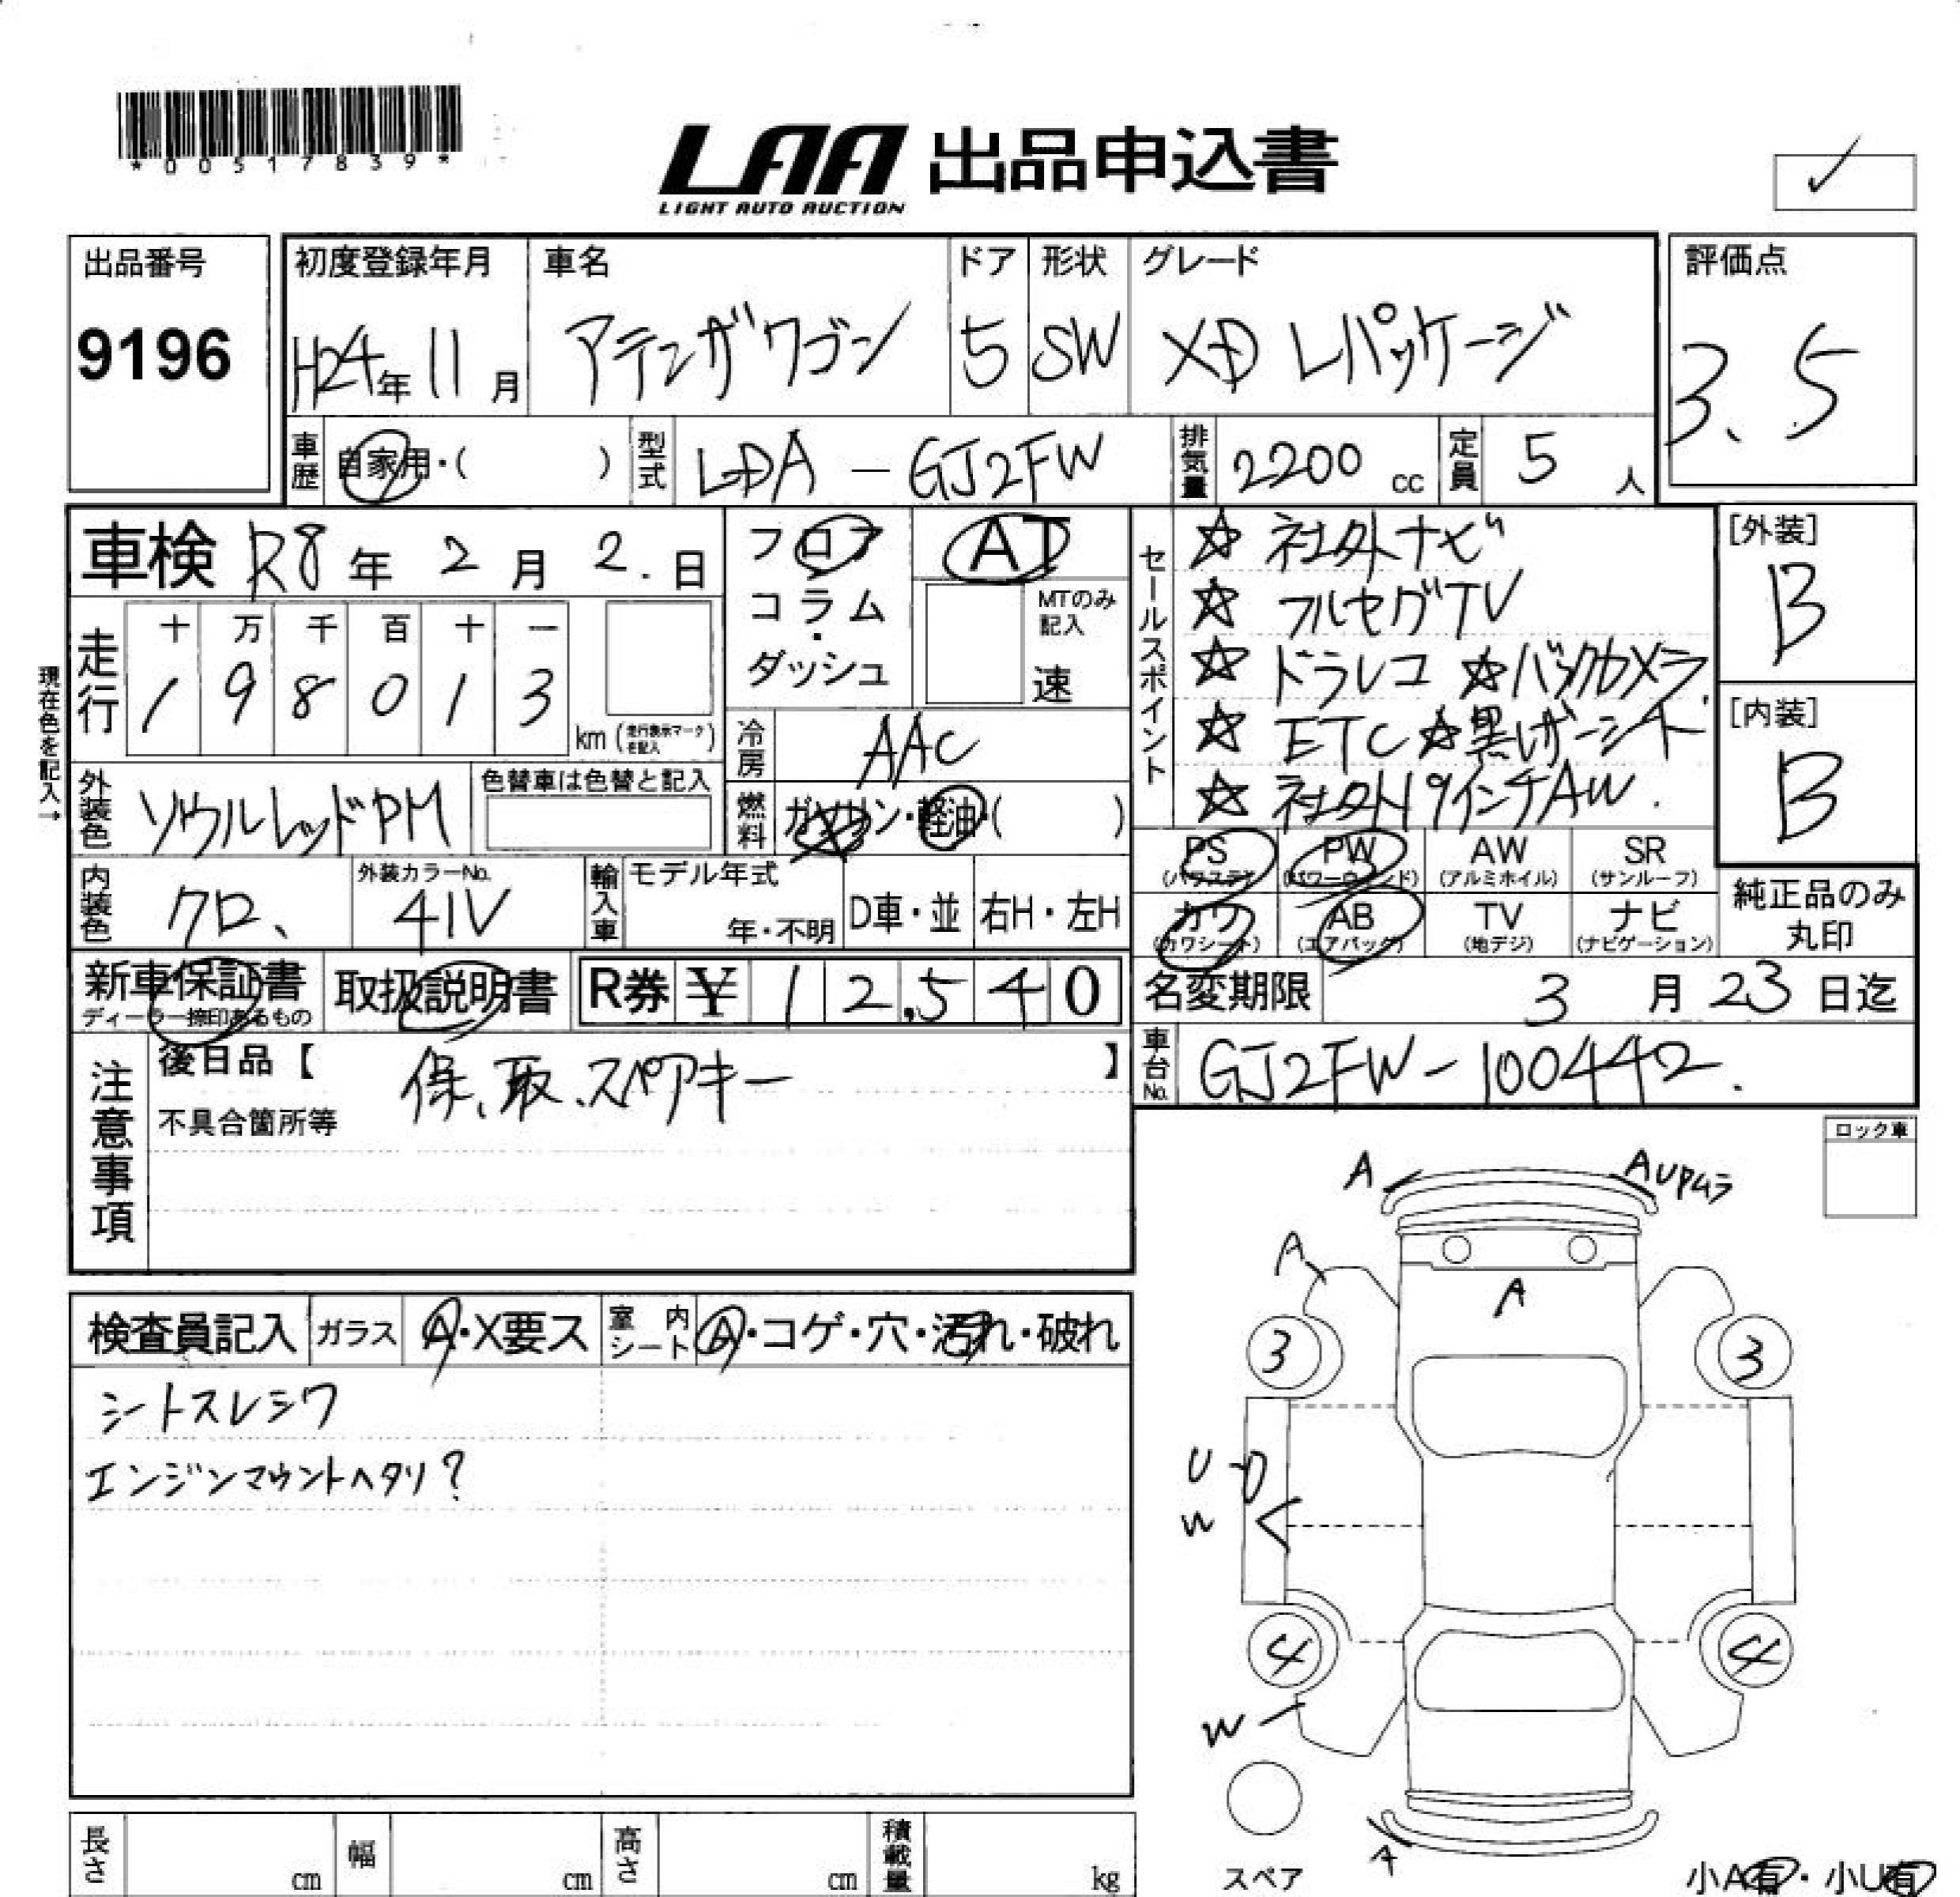 *00517839*
LAA 出品申込書
LIGHT AUTO AUCTION
✓
出品番号
9196
初度登録年月
H24年 11月
車名
アテンザワゴン
ドア
5
形状
SW
グレード
XD Lパッケージ
評価点
3.5
車歴 自家用・( )
型式 LDA-GJ2FW
排気量 2200 cc
定員 5 人
車検 R8年 2月 2.日
フロア
コラム
・
ダッシュ
AT
MTのみ
記入
速
セールスポイント
☆ 社外ナビ
☆ フルセグTV
☆ ドラレコ ☆バックカメラ
☆ ETC ☆黒レザーシート
☆ 社外19インチAW.
[外装]
B
[内装]
B
現在色を記入→
走行
十 万 千 百 十 一
1 9 8 0 1 3
km (走行表示マークを記入)
冷房 AAC
外装色 ソウルレッドPM
色替車は色替と記入
燃料 ガソリン・軽油・( )
内装色 クロ、
外装カラーNo.
41V
輸入車
モデル年式
年・不明
D車・並
右H・左H
PS
(パワステ)
PW
(パワーウィンド)
AW
(アルミホイル)
SR
(サンルーフ)
カワ
(カワシート)
AB
(エアバック)
TV
(地デジ)
ナビ
(ナビゲーション)
純正品のみ
丸印
新車保証書
ディーラー捺印あるもの
取扱説明書
R券 ¥ 12,540
名変期限 3月 23日迄
注意事項
後日品【 保、取、スペアキー 】
不具合箇所等
車台No. GJ2FW-100442.
ロック車
A
AUPムラ
A
A
3
3
検査員記入
ガラス A・X要ス
室内シート A・コゲ・穴・汚れ・破れ
シートスレシワ
エンジンマウントヘタリ?
U
W
4
4
W
A
スペア
小A有・小U有
長さ cm
幅 cm
高さ cm
積載量 kg